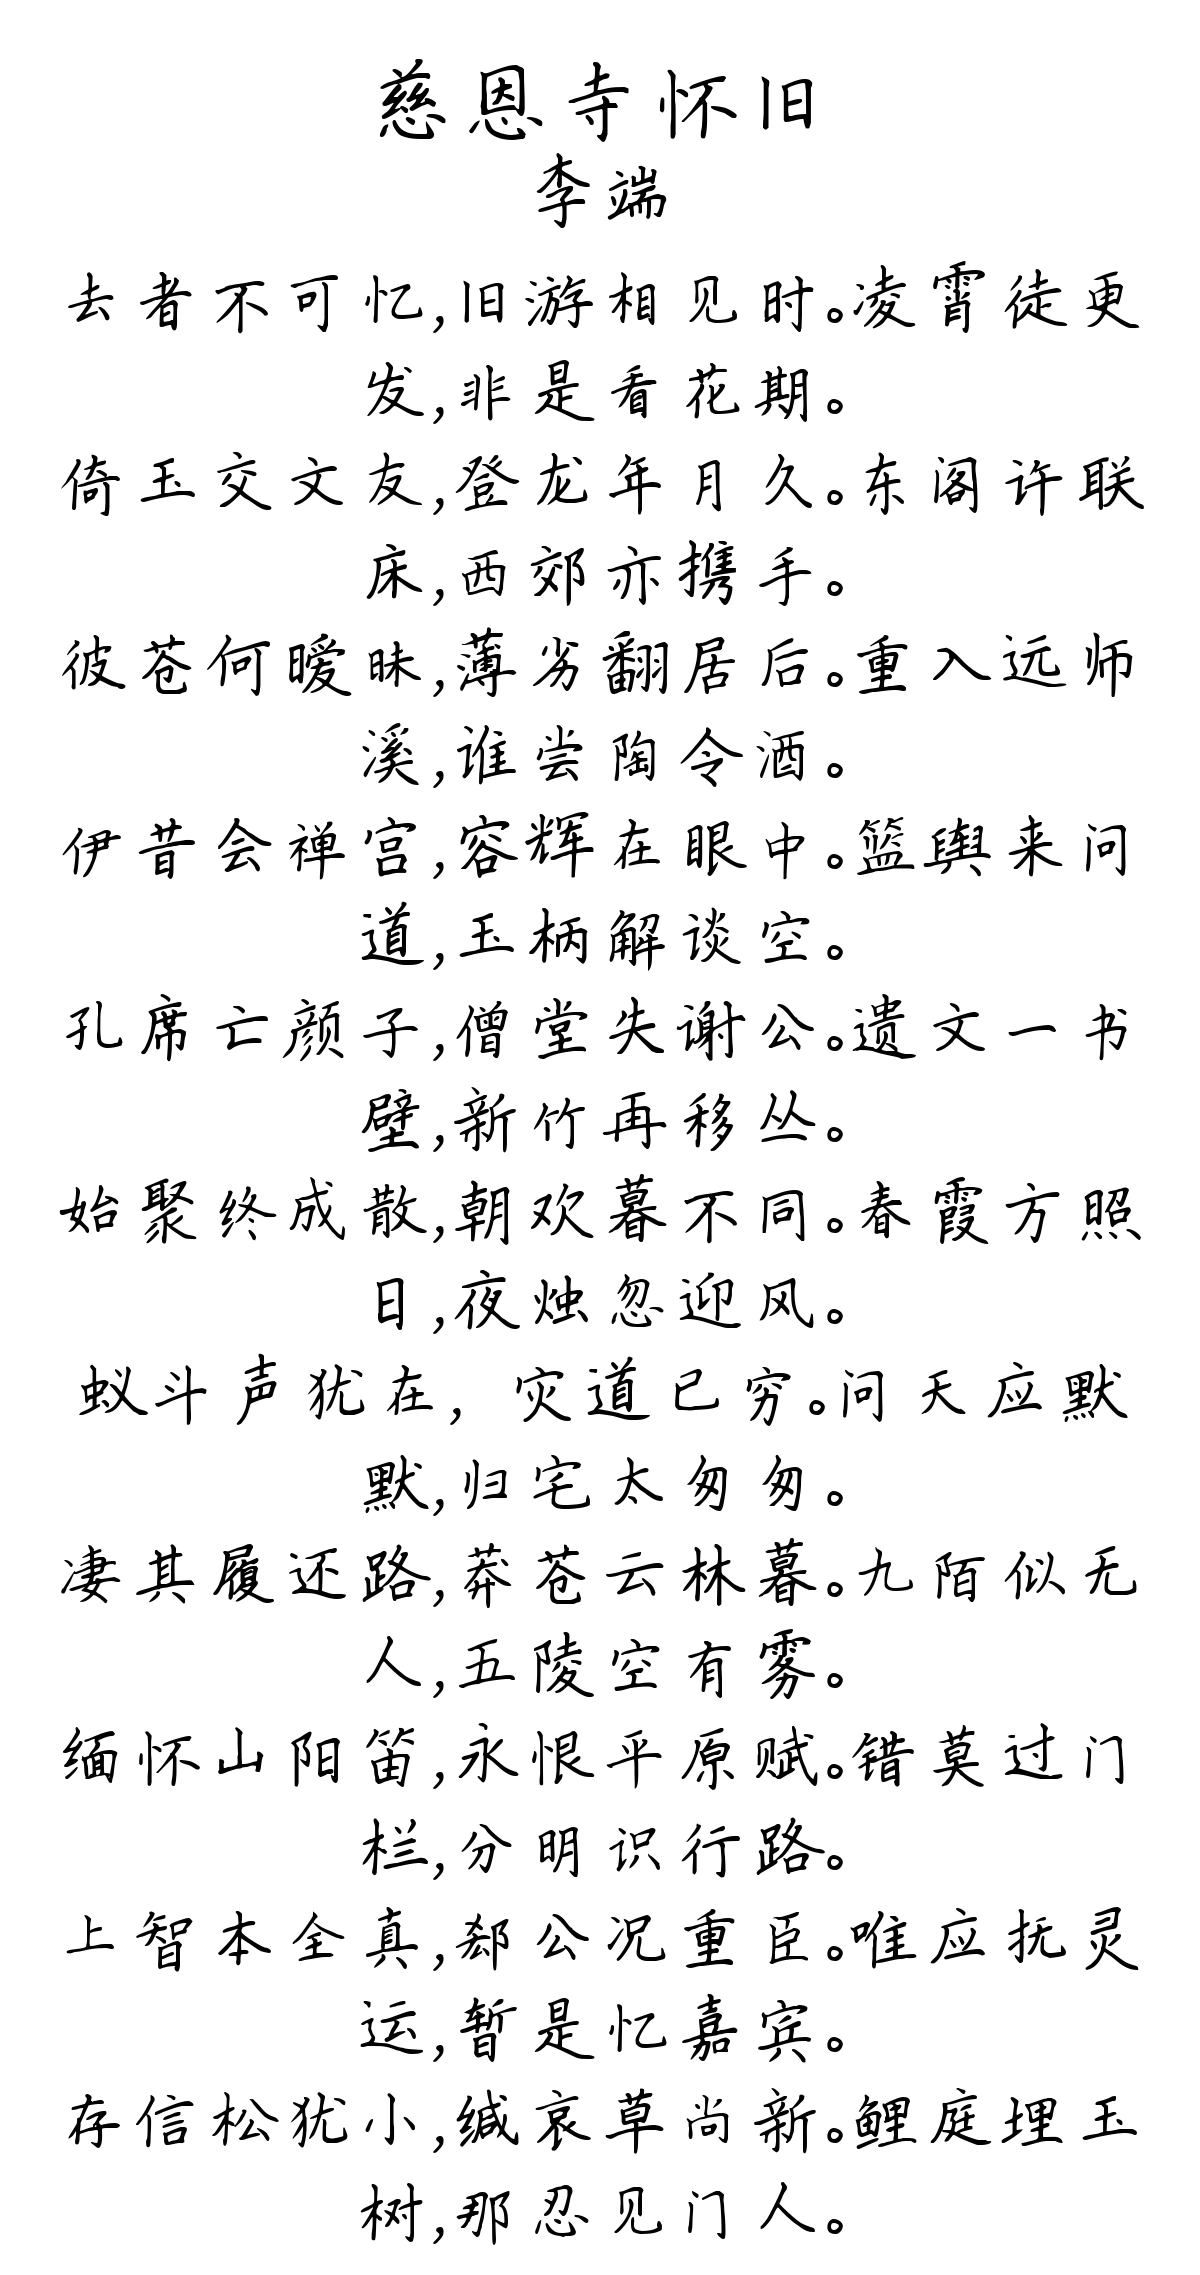 慈恩寺怀旧
李端
去者不可忆,旧游相见时。凌霄徒更
发,非是看花期。
倚玉交文友,登龙年月久。东阁许联
床,西郊亦携手。
彼苍何暧昧,薄劣翻居后。重入远师
溪,谁尝陶令酒。
伊昔会禅宫,容辉在眼中。篮舆来问
道,玉柄解谈空。
孔席亡颜子,僧堂失谢公。遗文一书
壁,新竹再移丛。
始聚终成散,朝欢暮不同。春霞方照
日,夜烛忽迎风。
蚁斗声犹在,灾道已穷。问天应默
默,归宅太匆匆。
凄其履还路,莽苍云林暮。九陌似无
人,五陵空有雾。
缅怀山阳笛,永恨平原赋。错莫过门
栏,分明识行路。
上智本全真,郄公况重臣。唯应抚灵
运,暂是忆嘉宾。
存信松犹小,缄哀草尚新。鲤庭埋玉
树,那忍见门人。